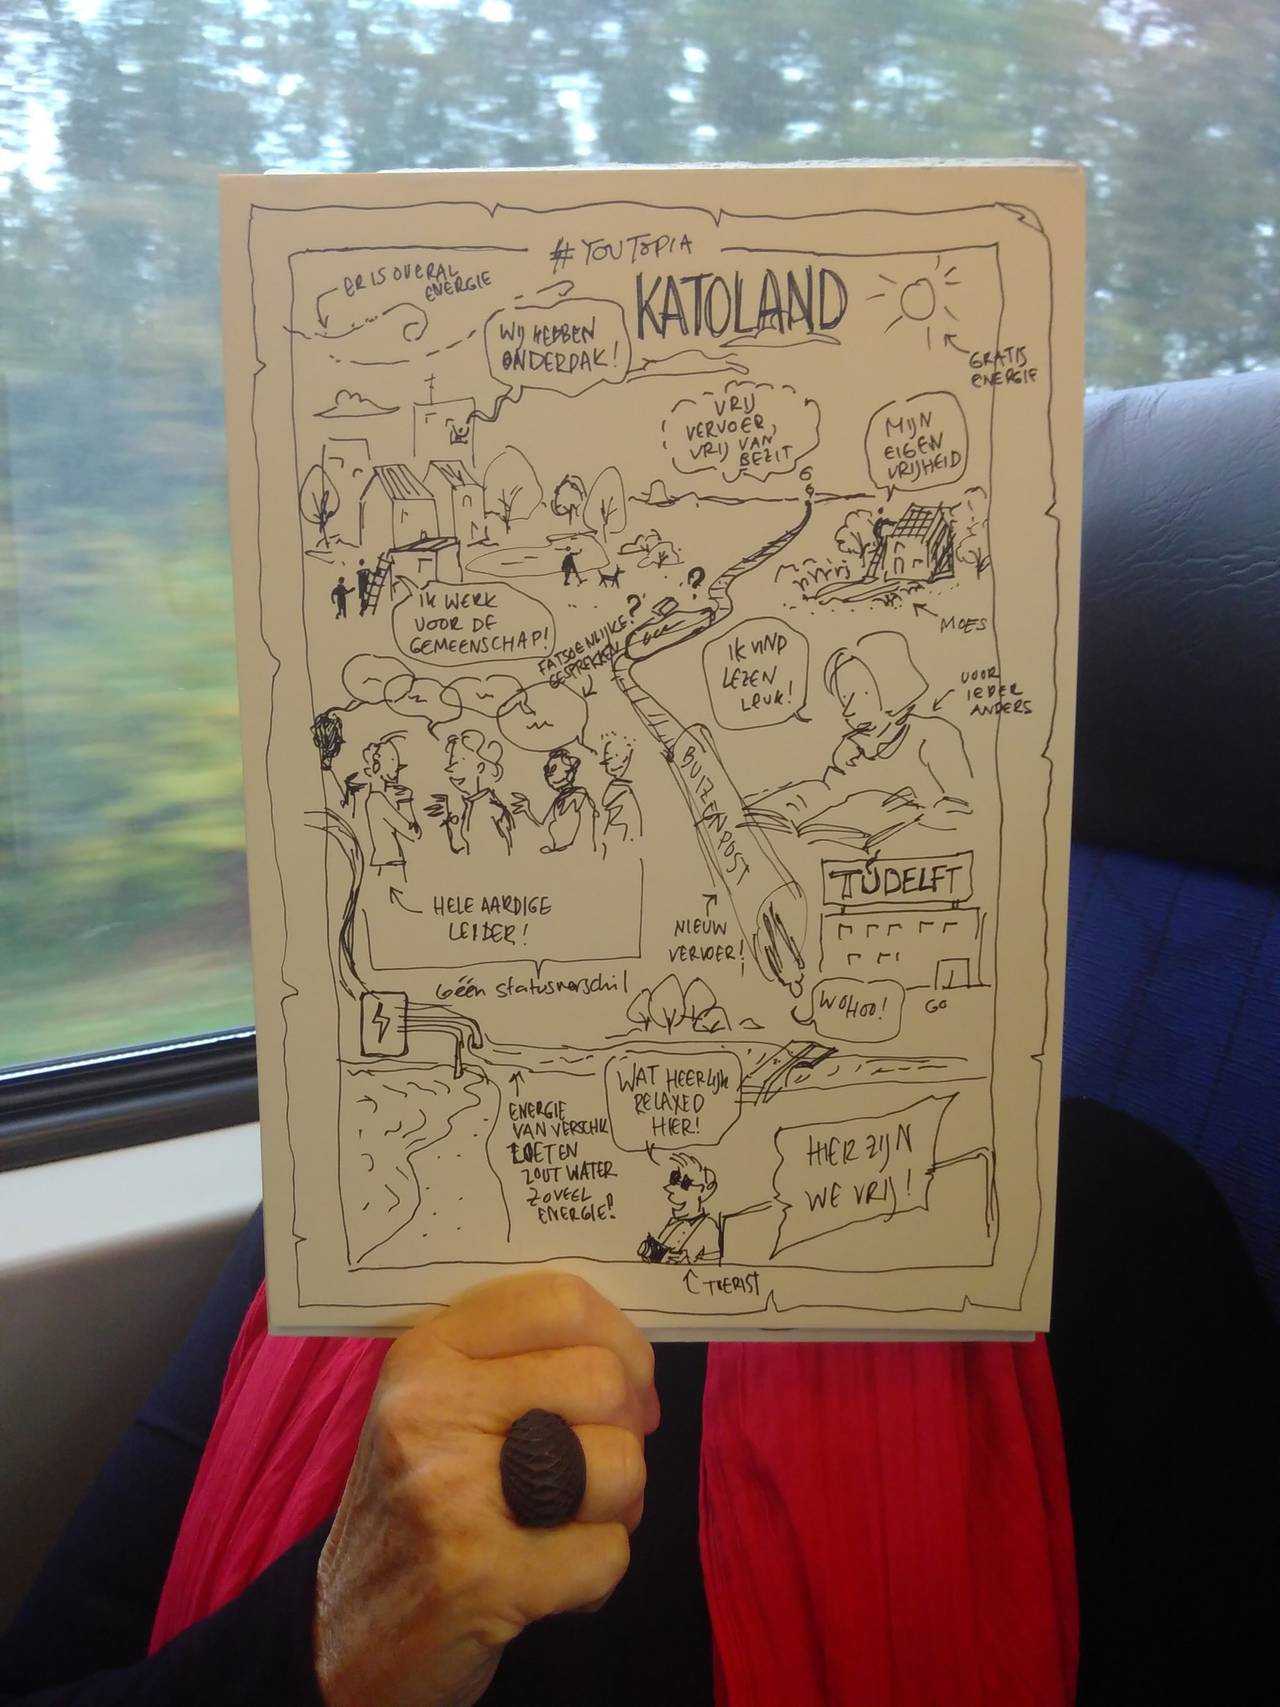 #YOUTOPIA
KATOLAND
ER IS OVERAL
ENERGIE
WIJ HEBBEN
ONDERDAK!
GRATIS
ENERGIE
VRIJ
VERVOER,
VRIJ VAN
BEZIT
MIJN
EIGEN
VRIJHEID
IK WERK
VOOR DE
GEMEENSCHAP!
MOES
FATSOENLIJKE?
GESPREKKEN
?
IK VIND
LEZEN
LEUK!
VOOR
IEDER
ANDERS
BUIZENPOST
HELE AARDIGE
LEIDER!
NIEUW
VERVOER!
TUDELFT
géén statusverschil
WOHOO!
GO
WAT HEERLIJK
RELAXED
HIER!
ENERGIE
VAN VERSCHIL
ZOET EN
ZOUT WATER
ZOVEEL
ENERGIE!
HIER ZIJN
WE VRIJ!
TOERIST